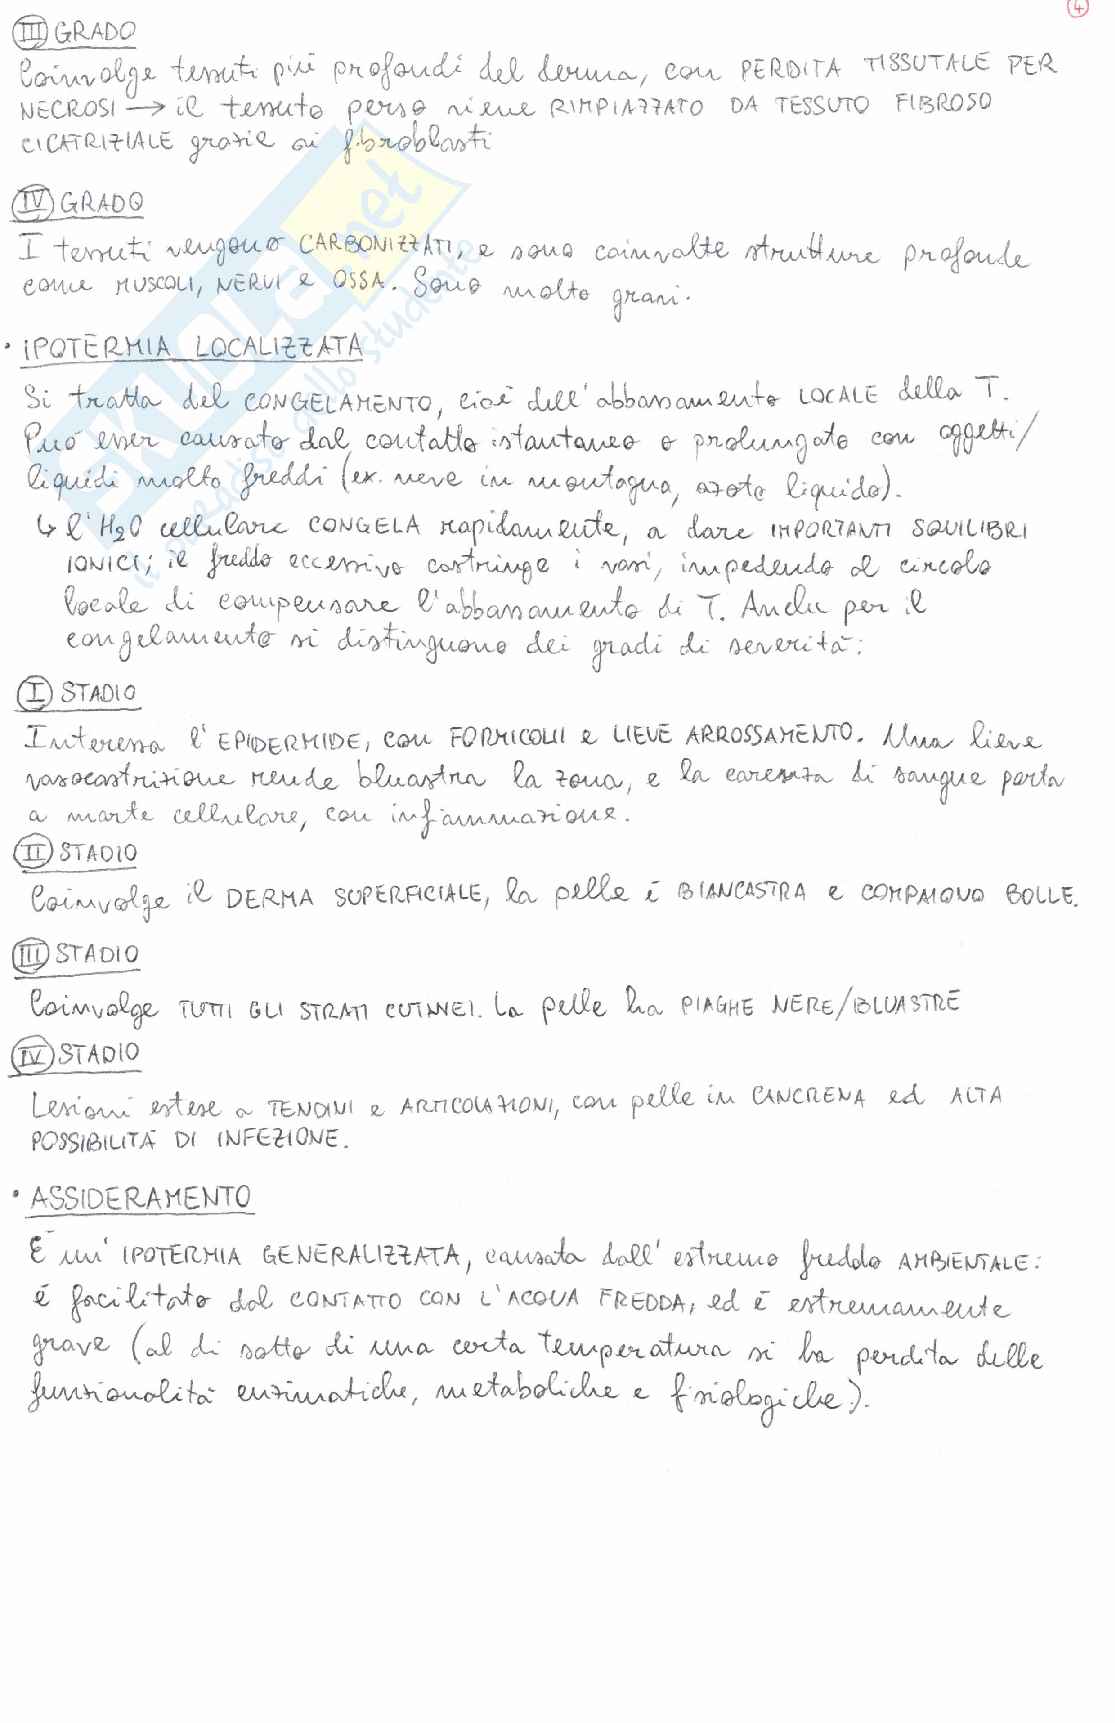 4
III GRADO
Coinvolge tessuti più profondi del derma, con PERDITA TISSUTALE PER
NECROSI → il tessuto perso viene RIMPIAZZATO DA TESSUTO FIBROSO
CICATRIZIALE grazie ai fibroblasti
IV GRADO
I tessuti vengono CARBONIZZATI, e sono coinvolte strutture profonde
come MUSCOLI, NERVI e OSSA. Sono molto gravi.
• IPOTERMIA LOCALIZZATA
Si tratta del CONGELAMENTO, cioè dell'abbassamento LOCALE della T.
Può esser causato dal contatto istantaneo o prolungato con oggetti/
liquidi molto freddi (ex. neve in montagna, azoto liquido).
↳ l'H2O cellulare CONGELA rapidamente, a dare IMPORTANTI SQUILIBRI
IONICI; il freddo eccessivo costringe i vasi, impedendo al circolo
locale di compensare l'abbassamento di T. Anche per il
congelamento si distinguono dei gradi di severità:
I STADIO
Interessa l'EPIDERMIDE, con FORMICOLII e LIEVE ARROSSAMENTO. Una lieve
vasocostrizione rende bluastra la zona, e la carenza di sangue porta
a morte cellulare, con infiammazione.
II STADIO
Coinvolge il DERMA SUPERFICIALE, la pelle è BIANCASTRA e COMPAIONO BOLLE.
III STADIO
Coinvolge TUTTI GLI STRATI CUTANEI. La pelle ha PIAGHE NERE/BLUASTRE
IV STADIO
Lesioni estese a TENDINI e ARTICOLAZIONI, con pelle in CANCRENA ed ALTA
POSSIBILITÀ DI INFEZIONE.
• ASSIDERAMENTO
È un'IPOTERMIA GENERALIZZATA, causata dall'estremo freddo AMBIENTALE:
è facilitato dal CONTATTO CON L'ACQUA FREDDA, ed è estremamente
grave (al di sotto di una certa temperatura si ha perdita delle
funzionalità enzimatiche, metaboliche e fisiologiche).
SKUOLA.net
il paradiso dello studente